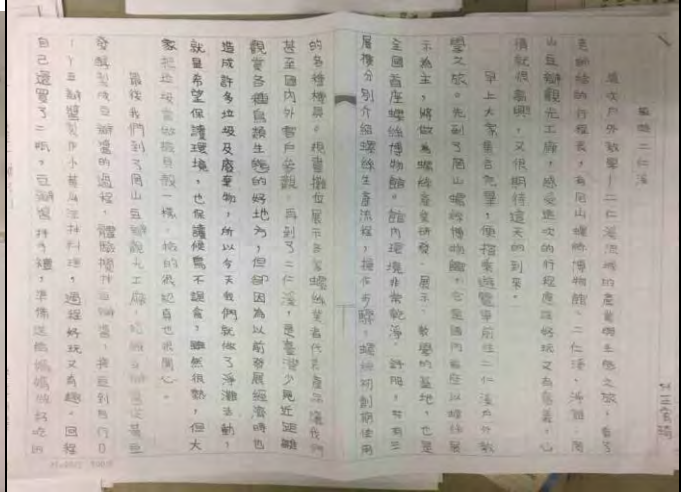 這次戶外教學-二仁溪流域的產業與生態之旅,看了
老師給的行程表,有岡山螺絲博物館、二仁溪、淨灘、岡
山豆瓣觀光工廠,感受這次的行程應該好玩又有意義,心
情就很高興,又很期待這天的到來。
早上大家集合完畢,便搭乘遊覽車前往二仁溪戶外教
學之旅。先到了岡山螺絲博物館,它是國內首座以螺絲展
示為主,將做為螺絲產業研發、展示、教學的基地,也是
全國首座螺絲博物館。館內環境非常乾淨、舒服,共有三
層樓分別介紹螺絲生產流程,操作步驟,螺絲初創期使用
的各種機具。現場攤位展示各家螺絲業者代表產品讓我們
甚至國內外客戶參觀。再到了二仁溪,是臺灣少見近距離
觀賞各種鳥類生態的好地方,但卻因為以前發展經濟時也
造成許多垃圾及廢棄物,所以今天我們就做了淨灘活動,
就是希望保護環境,也保護候鳥不誤食,雖然很熱,但大
家把垃圾當做撿貝殼一樣,撿的很起勁也很開心。
最後我們到了岡山豆瓣觀光工廠,
發酵製成豆瓣醬的過程,體驗攪拌豆瓣醬,
豆瓣醬製作小黃瓜涼拌料理,過程好玩又有趣。回程
自己還買了二瓶,豆瓣醬拌手禮,準備送給媽媽做好吃的